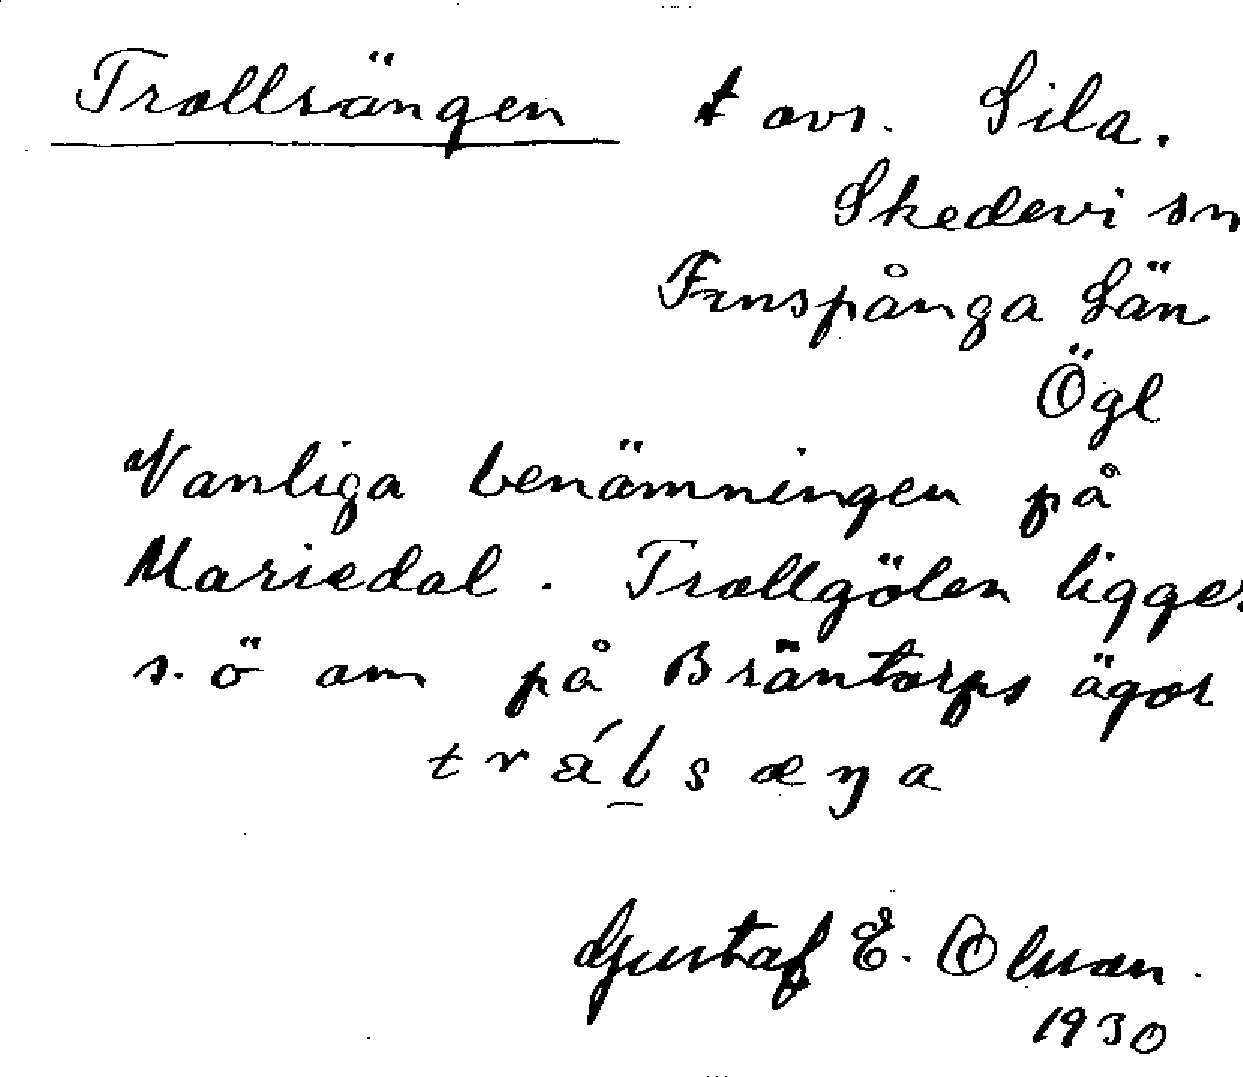 Trollsängen t avs. Sila.
Skedevi sn
Finspånga Län
Ögl
Vanliga benämningen på
Mariedal. Trollgölen ligger
s.ö om på Bräntorps ägor
trålsæŋa
Gustaf E. Olsson.
1930